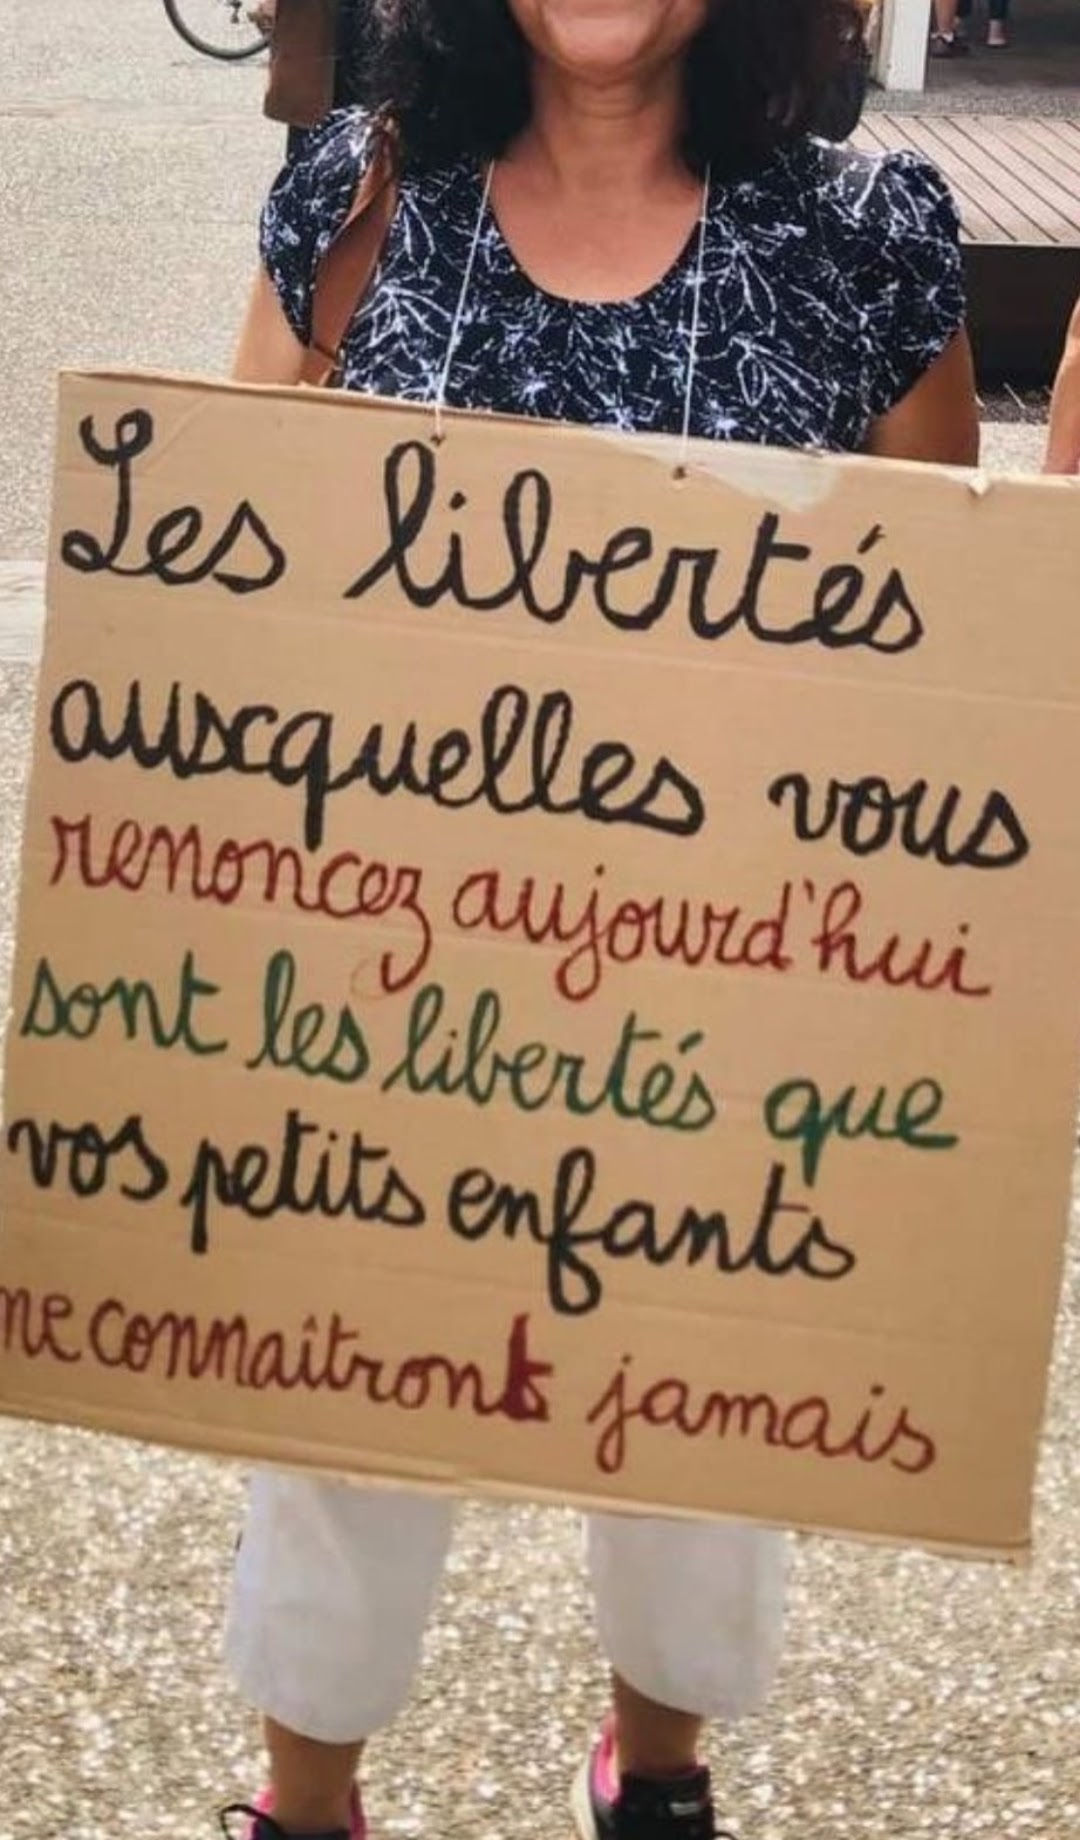 Les libertés
auxquelles vous
renoncez aujourd'hui
sont les libertés que
vos petits enfants
ne connaîtront jamais